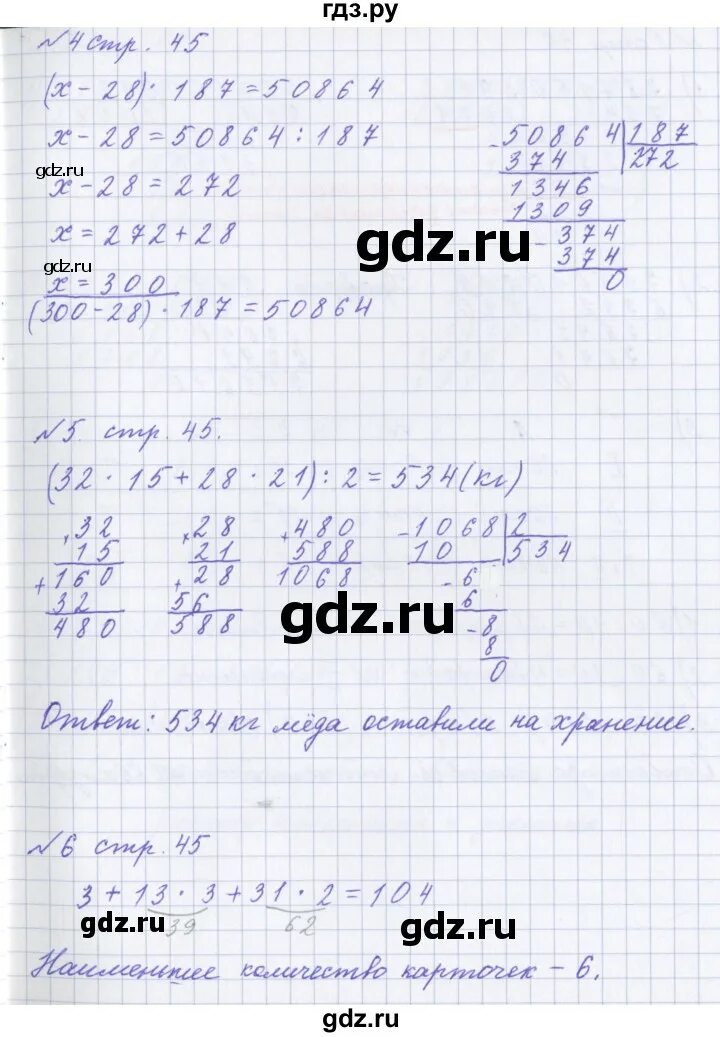 гдз.ру
№4 стр. 45
(x - 28) · 187 = 50864
x - 28 = 50864 : 187
gdz.ru
x - 28 = 272
x = 272 + 28
gdz.ru
x = 300
(300 - 28) · 187 = 50864
- 50864 | 187
374 | 272
1346
1309
- 374
374
0
gdz.ru
№5. стр. 45.
(32 · 15 + 28 · 21) : 2 = 534 (кг)
× 32
15
+ 160
32
480
× 28
21
+ 28
56
588
+ 480
588
1068
- 1068 | 2
10 | 534
- 6
6
- 8
8
0
gdz.ru
Ответ: 534 кг мёда оставили на хранение.
№6 стр. 45
3 + 13 · 3 + 31 · 2 = 104
39 62
gdz.ru
gdz.ru
Наименьшее количество карточек - 6.
gdz.ru